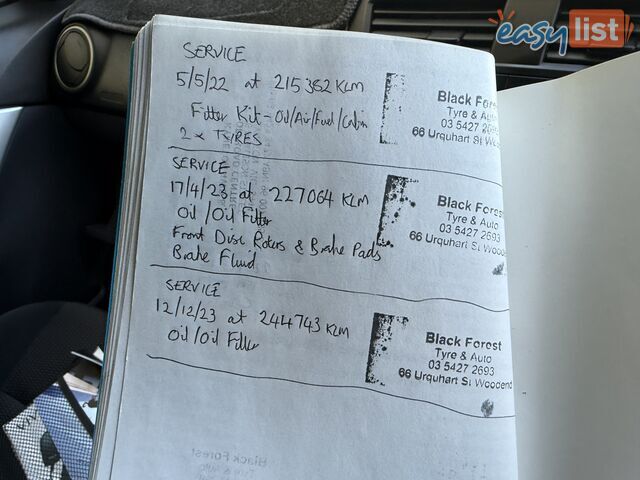 easy list
SERVICE
5/5/22 at 215362 KLM
Filter Kit - Oil/Air/Fuel/Cabin
2 x TYRES
Black Fores
Tyre & Auto
03 5427 2693
66 Urquhart St Wood
SERVICE
17/4/23 at 227064 KLM
Oil/Oil Filter
Front Disc Rotors & Brake Pads
Brake Fluid
Black Fores
Tyre & Auto
03 5427 2693
66 Urquhart St Wooden
SERVICE
12/12/23 at 244743 KLM
Oil/Oil Filter
Black Forest
Tyre & Auto
03 5427 2693
66 Urquhart St Woodend